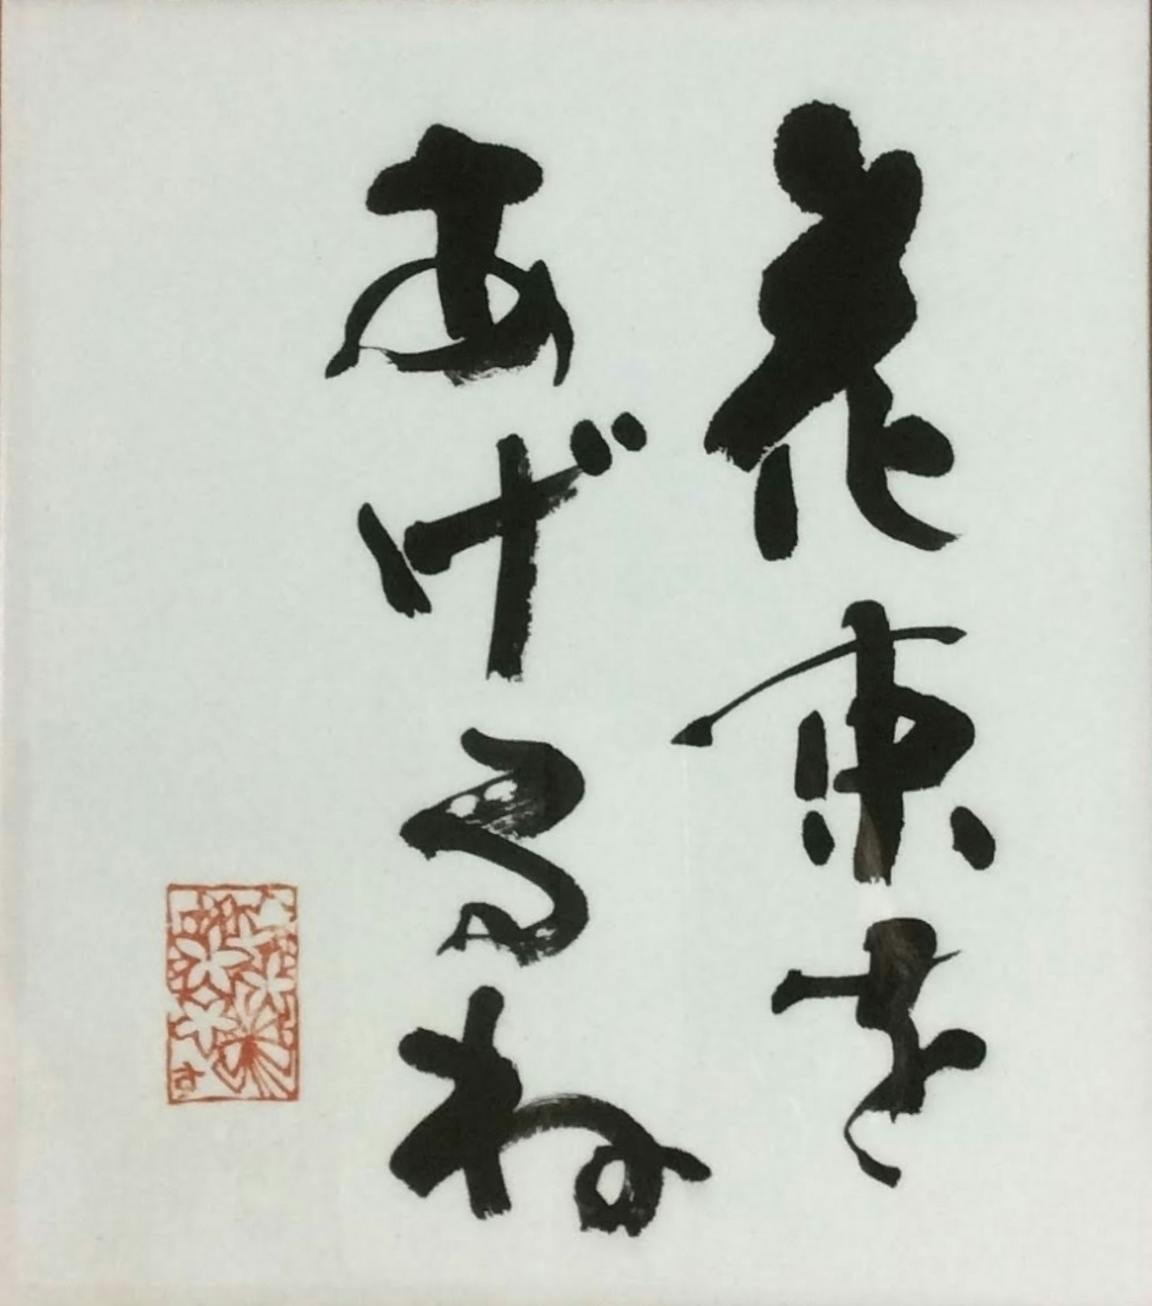 花束を
あげるね